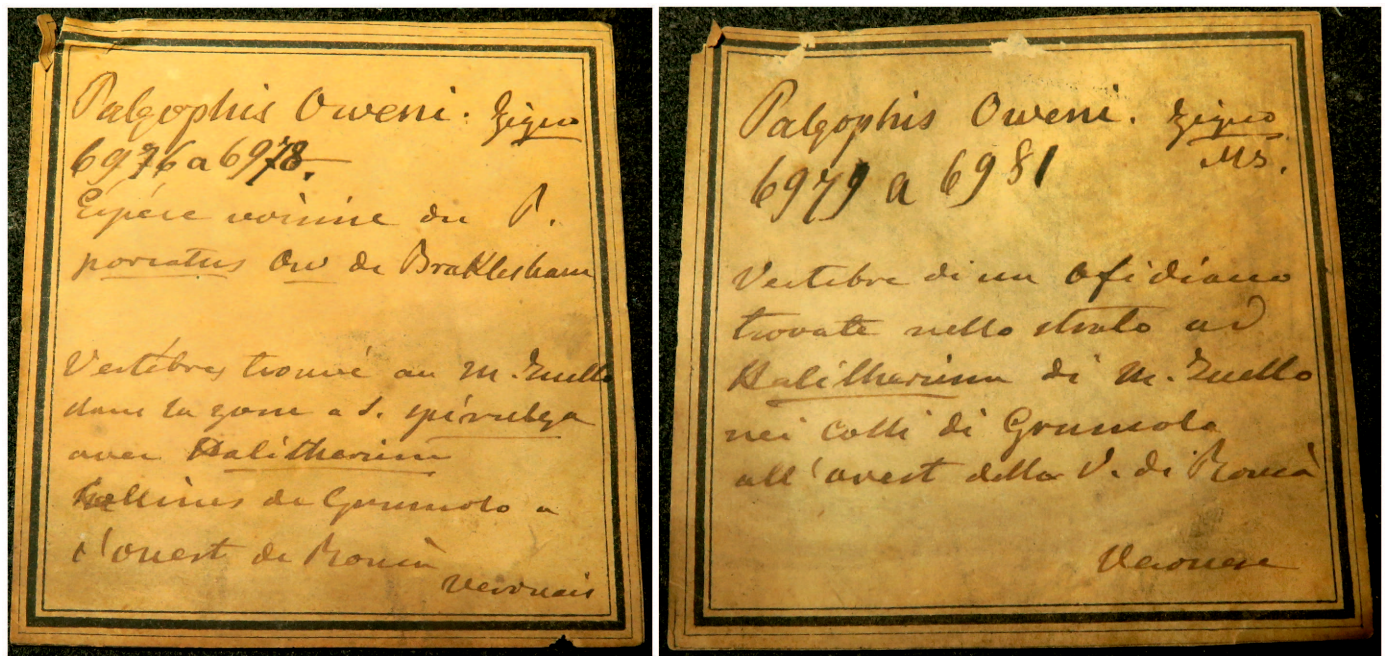 Palæophis Oweni. Zigno
6976 a 6978.
Espèce voisine du P.
porcatus Ow de Braklesham
Vertébres trouvé au M. Zuello
dans la zone a S. spirulæa
avec Halitherium
Collines de Grumolo a
l'ouest de Roncà
Veronais
Palæophis Oweni. Zigno
MS.
6979 a 6981
Vertebre di un Ofidiano
trovate nello strato ad
Halitherium di M. Zuello
nei Colli di Grumolo
all'ovest della V. di Roncà
Veronese